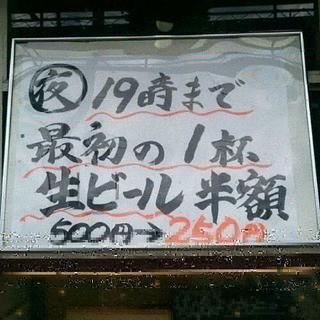 夜 19時まで
最初の1杯
生ビール半額
500円→250円